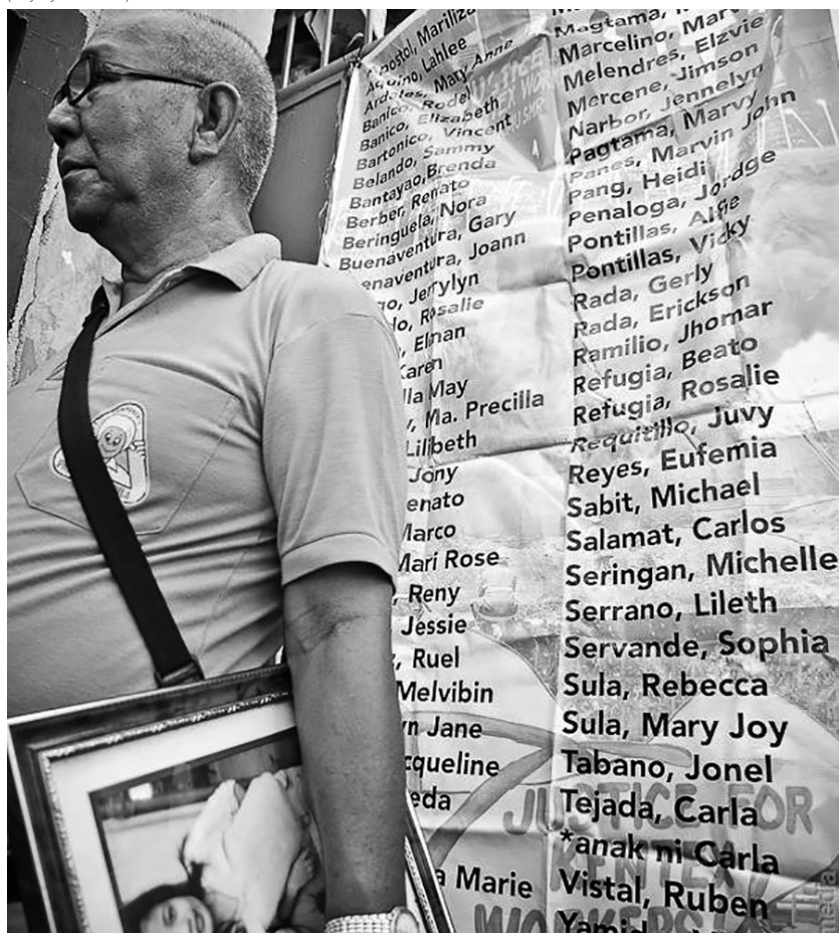 Apostol, Mariliz
Aquino, Lahlee
Ardales, Mary Anne
Banico, Rodel
Banico, Elizabeth
Bartonico, Vincent
Belando, Sammy
Bantayao, Brenda
Berber, Renato
Beringuela, Nora
Buenaventura, Gary
enaventura, Joann
o, Jerrylyn
lo, Rosalie
, Elman
Karen
lla May
, Ma. Precilla
Lilibeth
Jony
enato
Marco
Mari Rose
, Reny
Jessie
, Ruel
Melvibin
n Jane
cqueline
eda
a Marie
Magtama,
Marcelino, Marv
Melendres, Elzvie
Mercene, Jimson
Narbor, Jennelyn
Pagtama, Marvy
Panes, Marvin John
Pang, Heidi
Penaloga, Jordge
Pontillas, Alfie
Pontillas, Vicky
Rada, Gerly
Rada, Erickson
Ramilio, Jhomar
Refugia, Beato
Refugia, Rosalie
Requitillo, Juvy
Reyes, Eufemia
Sabit, Michael
Salamat, Carlos
Seringan, Michelle
Serrano, Lileth
Servande, Sophia
Sula, Rebecca
Sula, Mary Joy
Tabano, Jonel
Tejada, Carla
*anak ni Carla
Vistal, Ruben
Yamid
JUSTICE
JUSTICE FOR
KENTEX
WORKERS